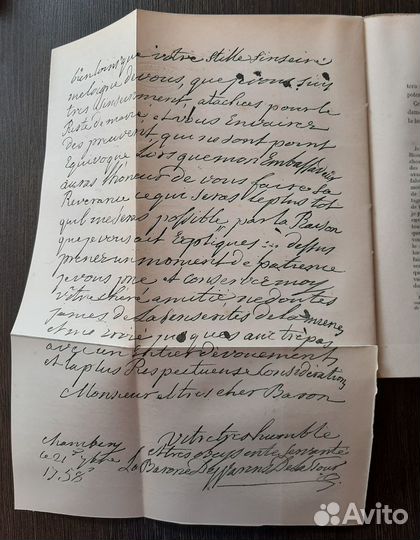 bien loin que votre Stille Sinseire
meloigne de vous, que je vous suis
tres Sinsairement, atachées pour le
Reste de ma vie et vous Envairez
des preuvent qui ne sont point
Equivoque lors que mon Embassadeur
auras lhoneur de vous faire Sa
Reverance ce qui Seras le plus tot
quil me Seras possible par la Raison
que je vous ait Expliquès dessus
prener un moment de patience
je vous prie et conserver moy
votre chere amitié ne doutes
james de la Senserité de la miene
et me croiré jusques aut trèpas
avec un Entier devouement
et la plus Respectueuse Consideration
Monsieur et tres cher Baron
Votre tres humble
et tres obeysente Servante
chambery
ce 21 7bre
1758
La Baronne De Warens De la Tour
Avito